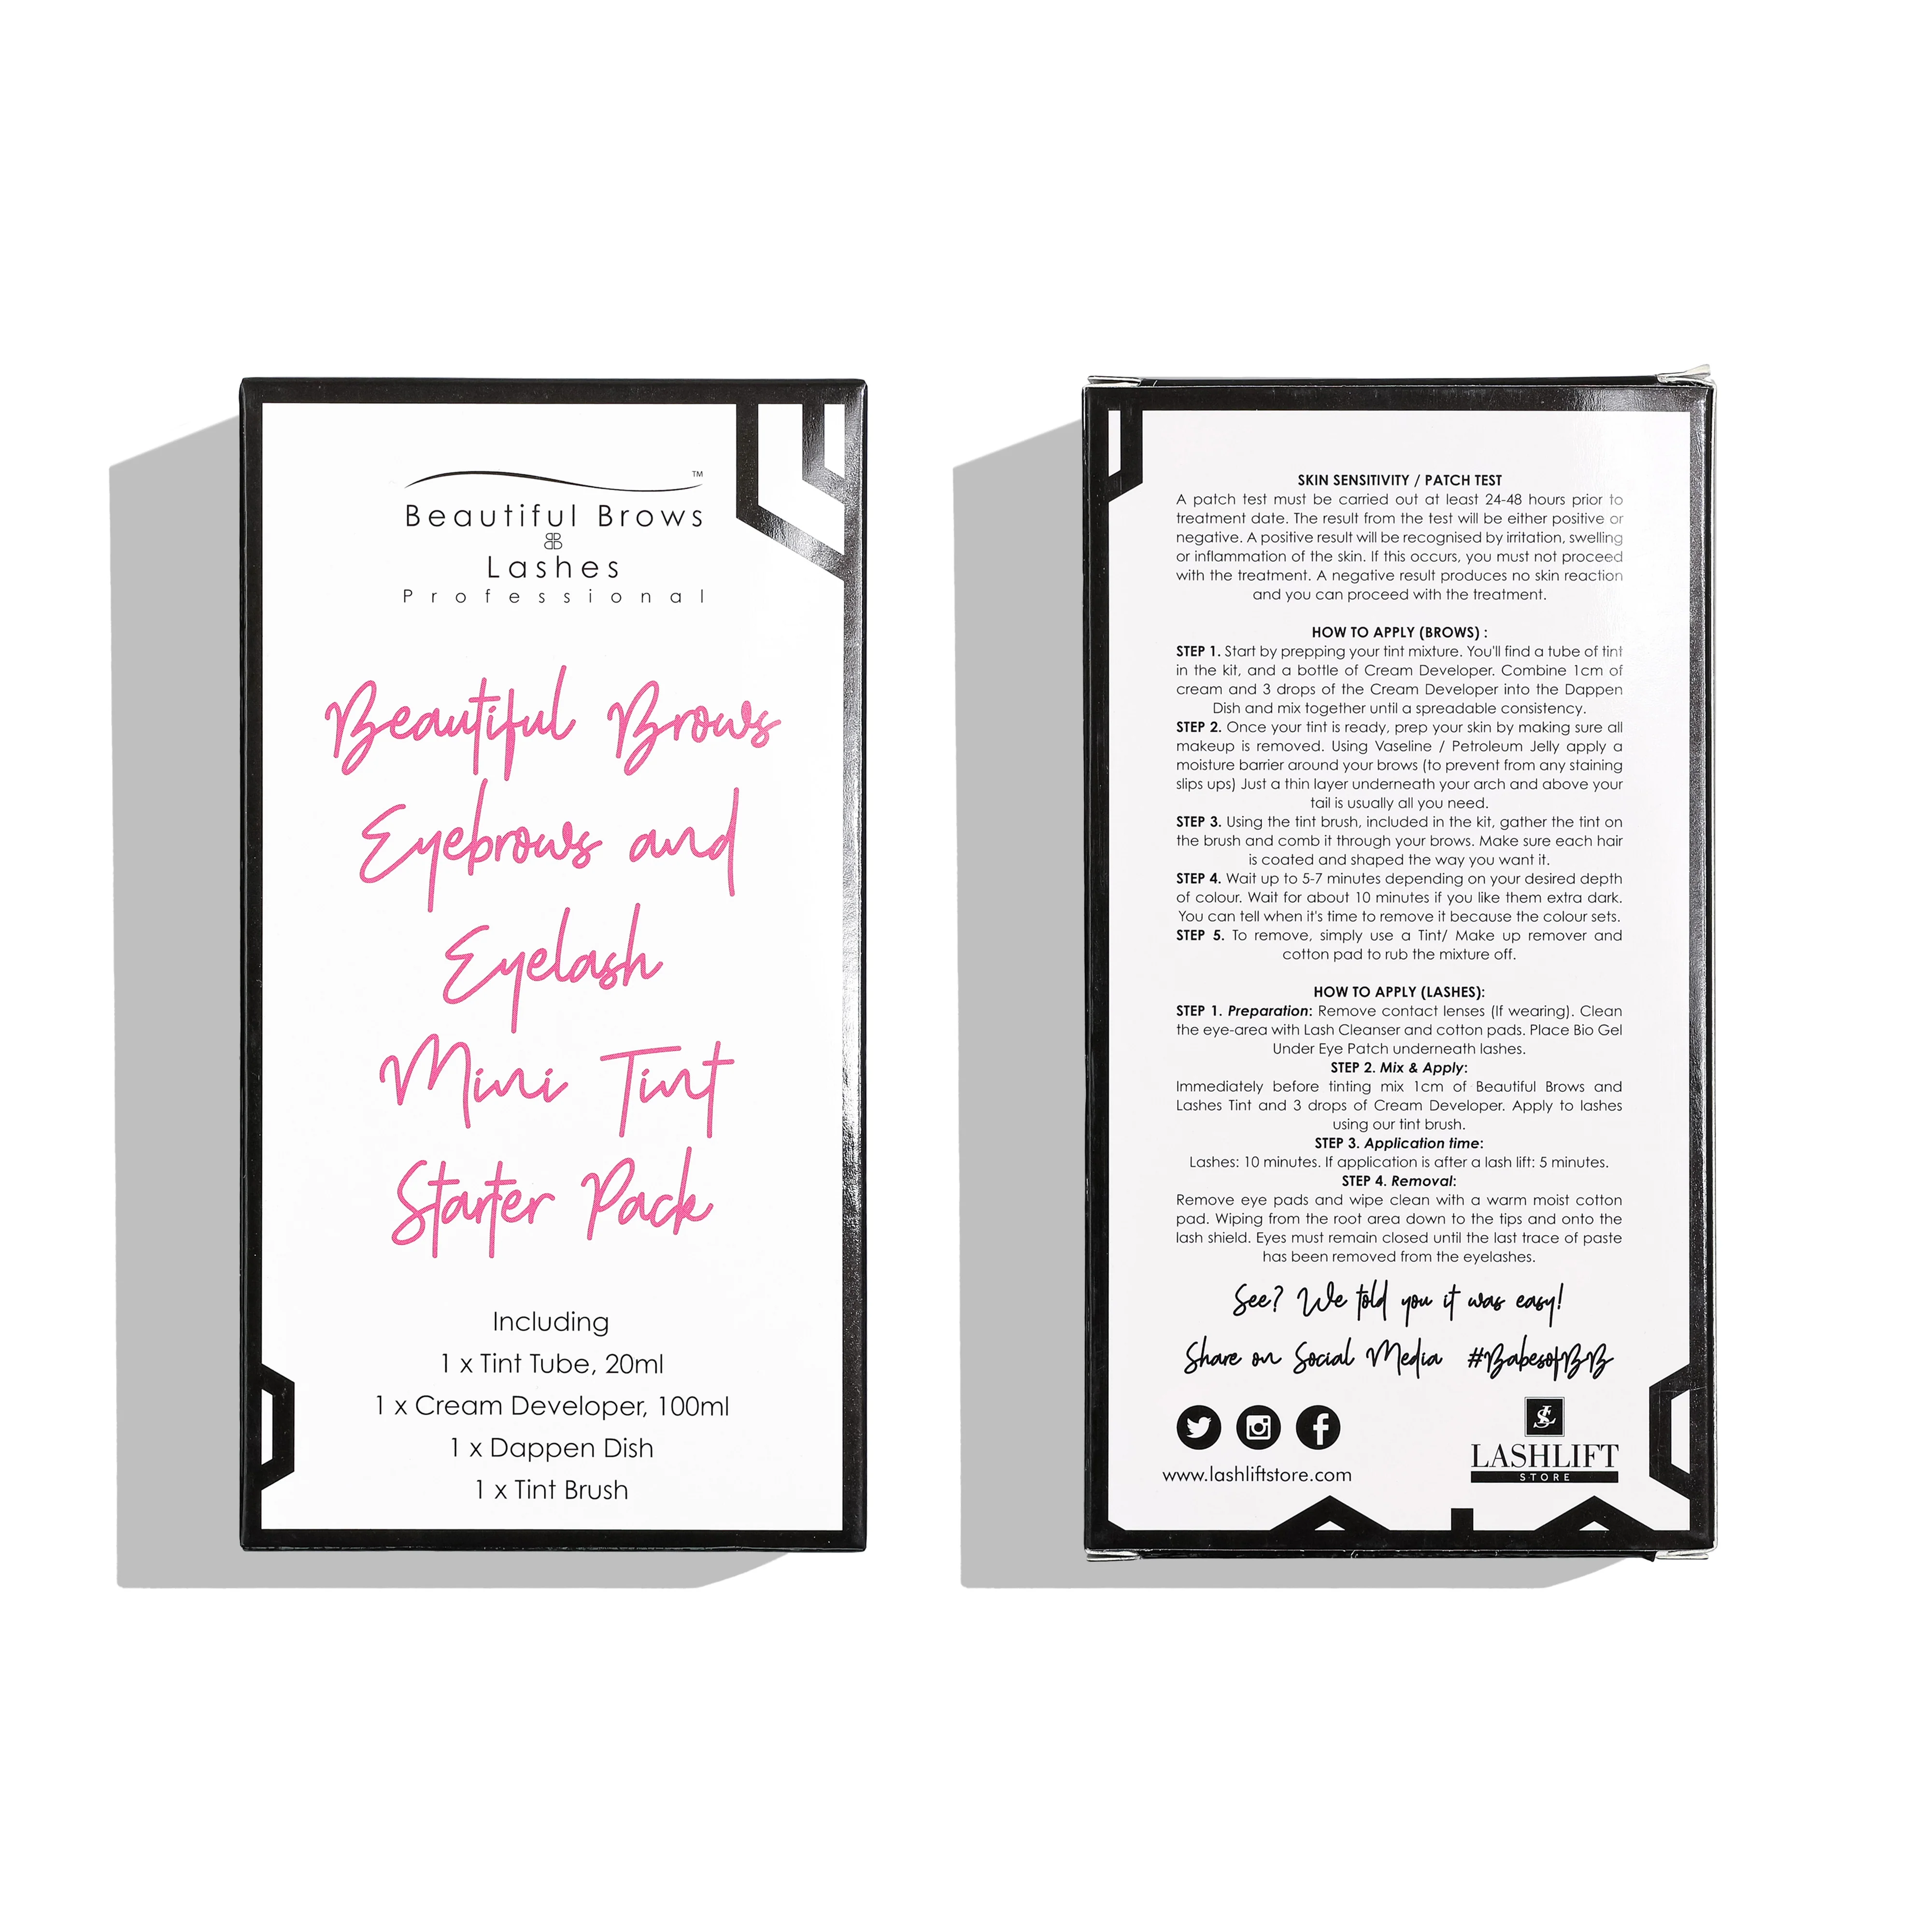 TM
Beautiful Brows
BB
Lashes
Professional
Beautiful Brows
Eyebrows and
Eyelash
Mini Tint
Starter Pack
Including
1 x Tint Tube, 20ml
1 x Cream Developer, 100ml
1 x Dappen Dish
1 x Tint Brush
SKIN SENSITIVITY / PATCH TEST
A patch test must be carried out at least 24-48 hours prior to
treatment date. The result from the test will be either positive or
negative. A positive result will be recognised by irritation, swelling
or inflammation of the skin. If this occurs, you must not proceed
with the treatment. A negative result produces no skin reaction
and you can proceed with the treatment.
HOW TO APPLY (BROWS) :
STEP 1. Start by prepping your tint mixture. You'll find a tube of tint
in the kit, and a bottle of Cream Developer. Combine 1cm of
cream and 3 drops of the Cream Developer into the Dappen
Dish and mix together until a spreadable consistency.
STEP 2. Once your tint is ready, prep your skin by making sure all
makeup is removed. Using Vaseline / Petroleum Jelly apply a
moisture barrier around your brows (to prevent from any staining
slips ups) Just a thin layer underneath your arch and above your
tail is usually all you need.
STEP 3. Using the tint brush, included in the kit, gather the tint on
the brush and comb it through your brows. Make sure each hair
is coated and shaped the way you want it.
STEP 4. Wait up to 5-7 minutes depending on your desired depth
of colour. Wait for about 10 minutes if you like them extra dark.
You can tell when it's time to remove it because the colour sets.
STEP 5. To remove, simply use a Tint/ Make up remover and
cotton pad to rub the mixture off.
HOW TO APPLY (LASHES):
STEP 1. Preparation: Remove contact lenses (If wearing). Clean
the eye-area with Lash Cleanser and cotton pads. Place Bio Gel
Under Eye Patch underneath lashes.
STEP 2. Mix & Apply:
Immediately before tinting mix 1cm of Beautiful Brows and
Lashes Tint and 3 drops of Cream Developer. Apply to lashes
using our tint brush.
STEP 3. Application time:
Lashes: 10 minutes. If application is after a lash lift: 5 minutes.
STEP 4. Removal:
Remove eye pads and wipe clean with a warm moist cotton
pad. Wiping from the root area down to the tips and onto the
lash shield. Eyes must remain closed until the last trace of paste
has been removed from the eyelashes.
See? We told you it was easy!
Share on Social Media #BabesofBB
www.lashliftstore.com
LSL
LASHLIFT
STORE